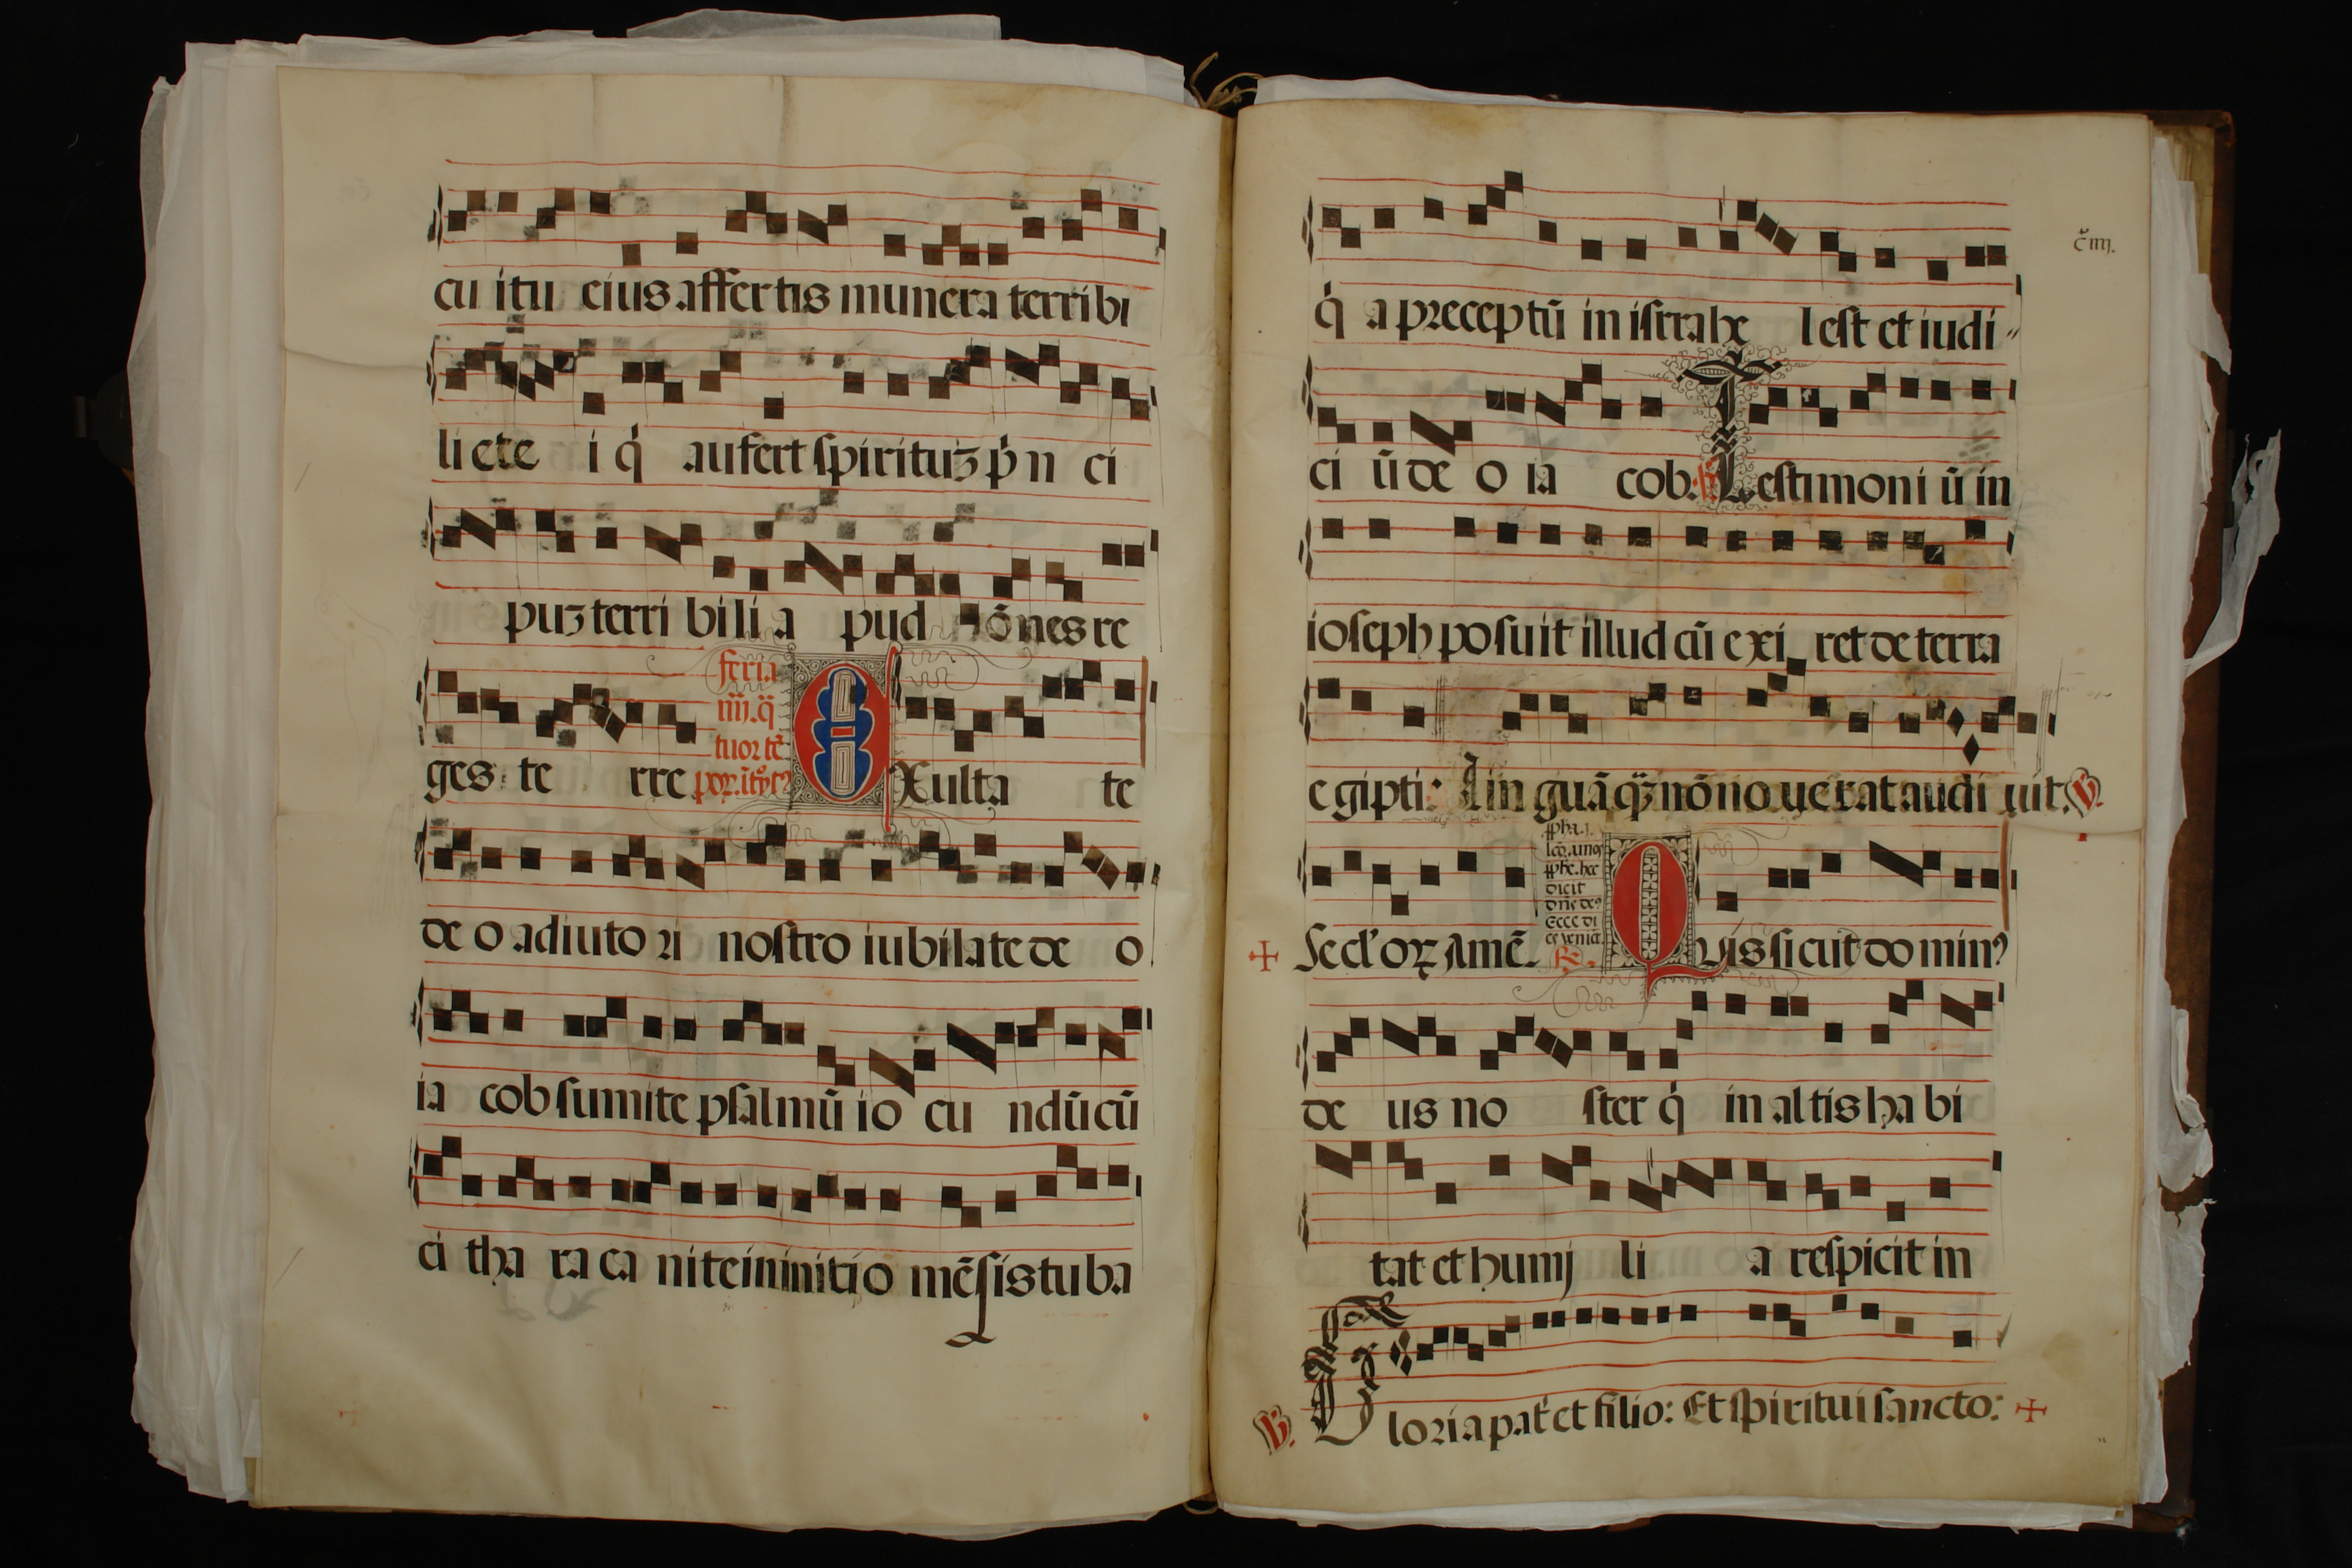 cu itu eius affertis munera terribi
li ete i q̇ aufert spirituꝫ ṗn ci
puꝫ terri bili a pud o̅nes re
feria
iiij. q̈
tuor te̅
ges te rre
Exulta te
de o adiuto ri nostro iubilate de o
ia cob sumite psalmu̅ io cu ndu̅ cu̅
ci tha ra ca nite in initio me̅sis tuba
c̊ iiij.
q̇ a preceptu̅ in israhe l est et iudi〃
ci u̅ de o ia cob. Testimoni u̅ in
ioseph posuit illud cu̅ exi ret de terra
egipti: Lin gua̅ qꝫ no̅ no ue rat audi uit. V.
dicit
Secl' oꝝ Ame̅. R. Quis sicut do minꝰ
de us no ster q̇ in altis ha bi
tat et humj li a respicit in
V. Gloria pat' et filio: Et spiritui sancto: